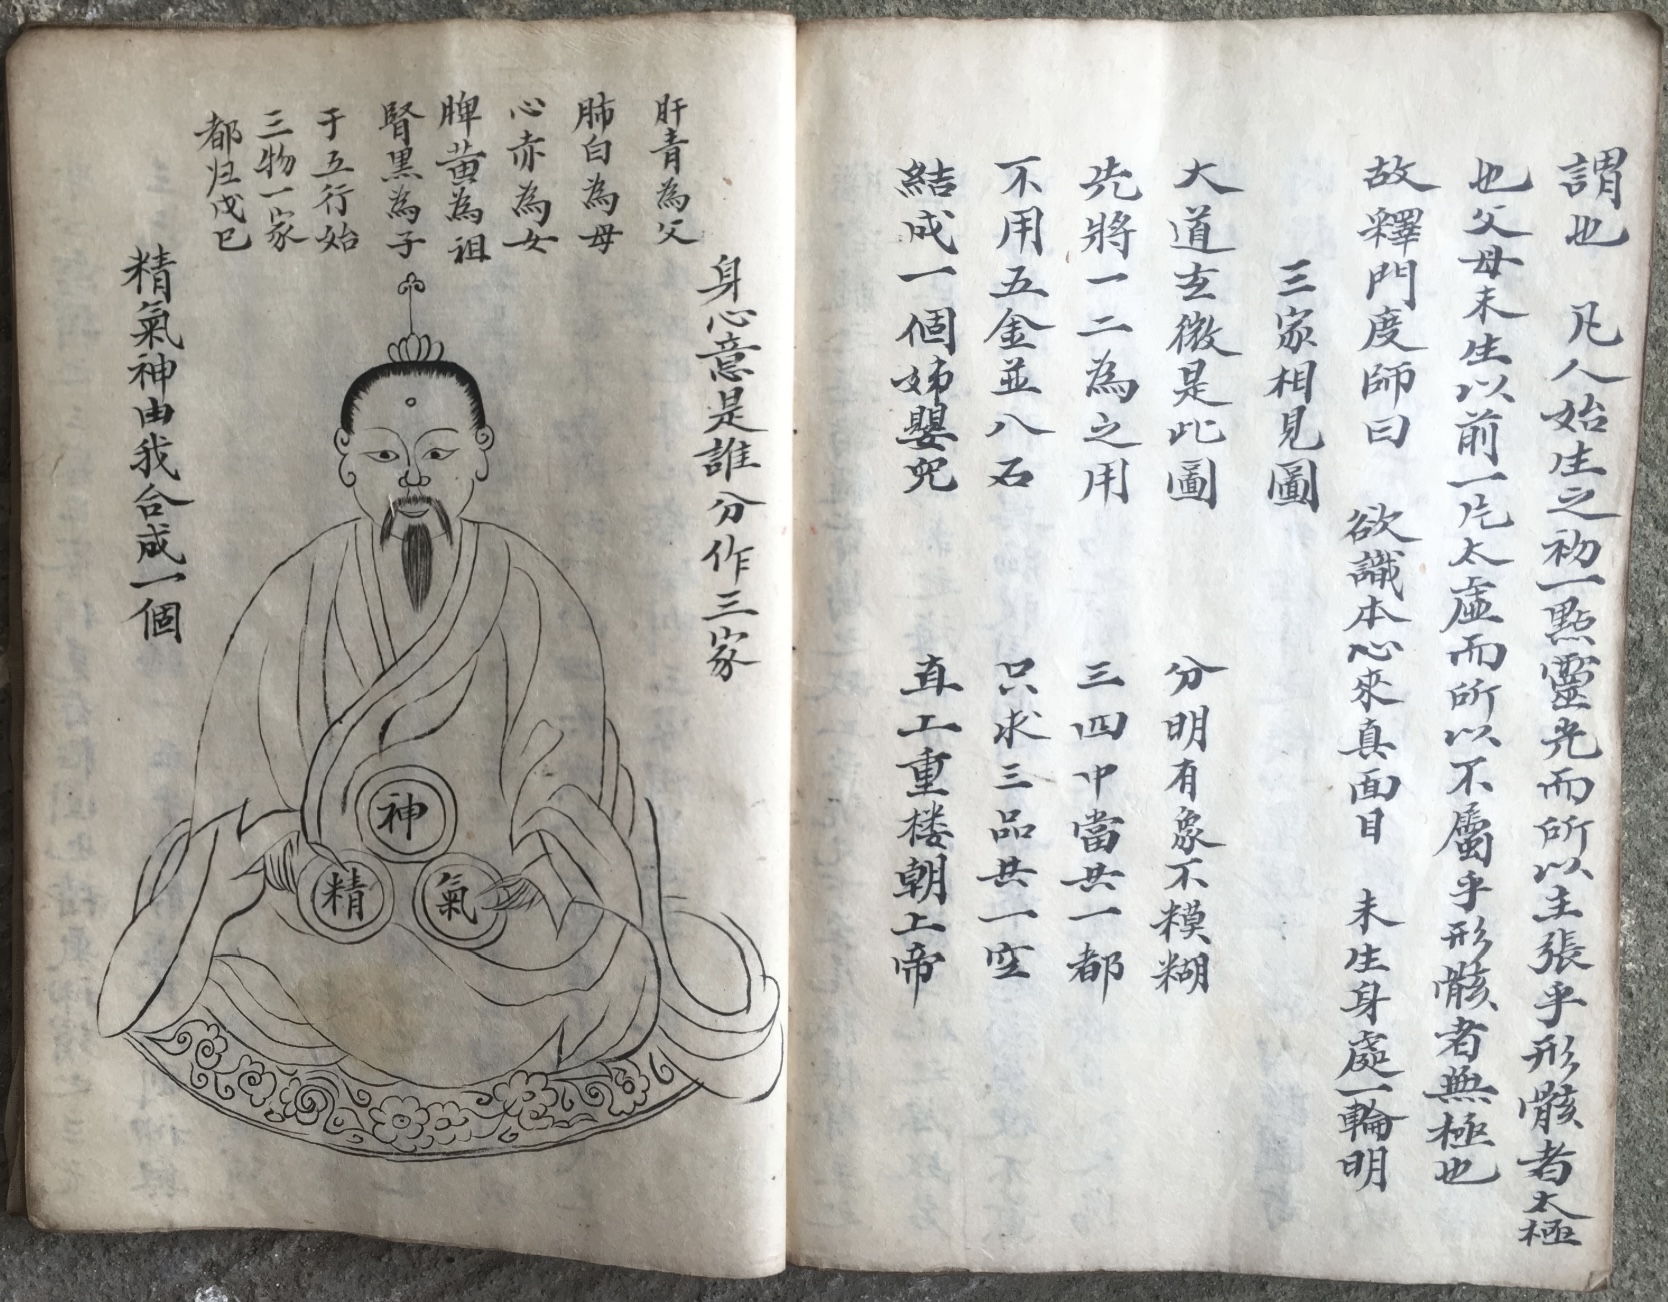 謂也 凡人始生之初一點靈光而所以主張乎形骸者太極
也父母未生以前一片太虛而所以不屬乎形骸者無極也
故釋門度師曰 欲識本心來真面目 未生身處一輪明
三家相見圖
大道玄微是此圖 分明有象不模糊
先將一二為之用 三四中當共一都
不用五金並八石 只求三品共一空
結成一個姊嬰児 直工重楼朝上帝
身心意是誰分作三家
肝青為父
肺白為母
心赤為女
脾黄為祖
腎黑為子
于五行始
三物一家
都归戊巳
精氣神由我合成一個
神
氣
精